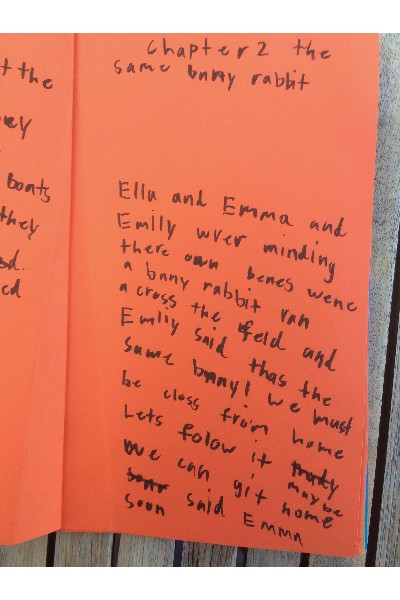 t the
ey
boats
they
d.
ed
Chapter 2 the
same bnny rabbit
Ella and Emma and
Emily wver minding
there own benes wene
a bnny rabbit ran
a cross the feld and
Emliy said thas the
same bnny! we must
be closs from home
Lets folow it
we can git maybe
home
soon said EMMA